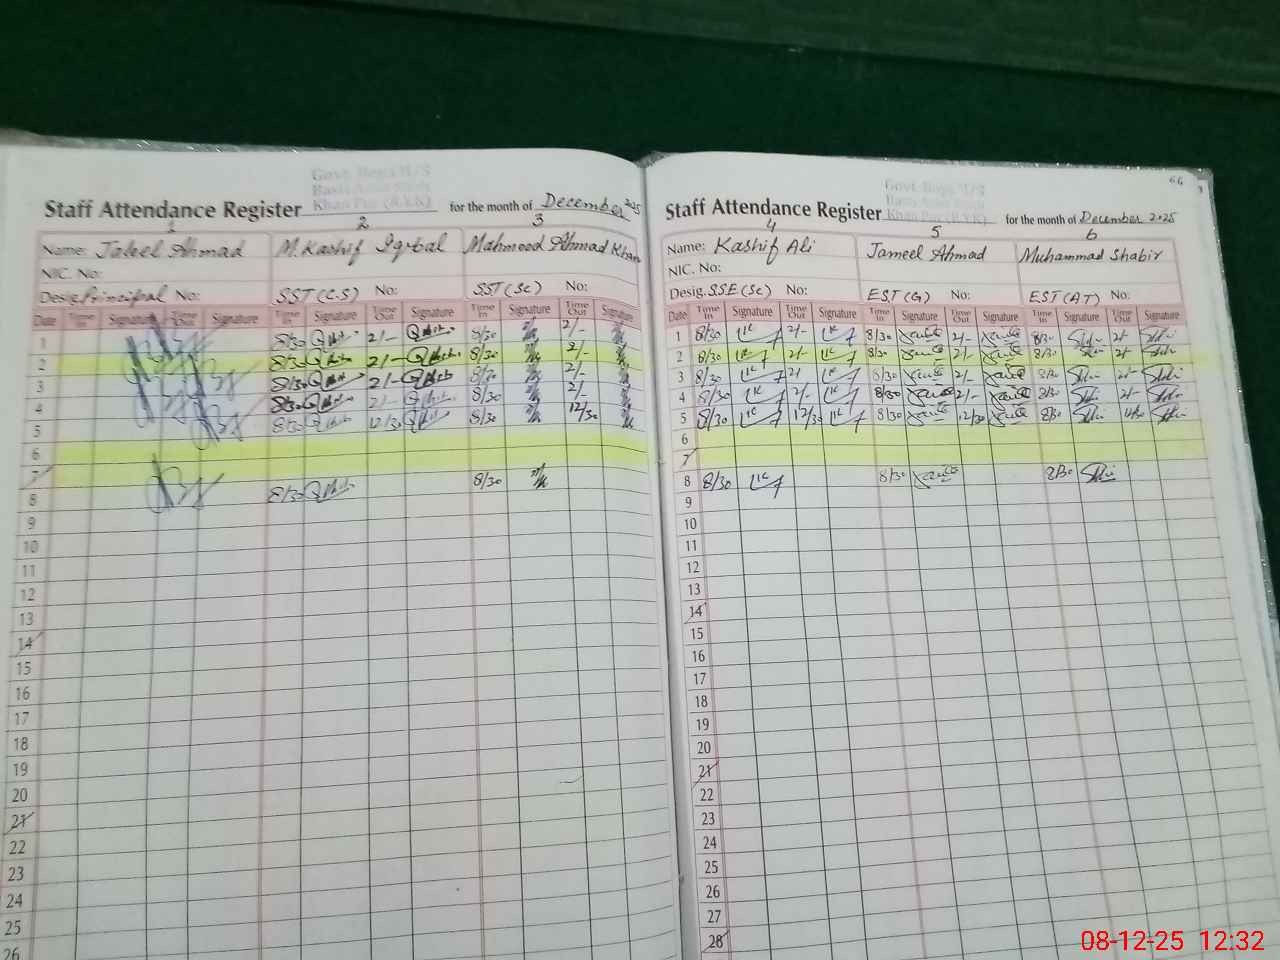 Govt. Boys H/S
Khan Pur (R.Y.K)
Staff Attendance Register for the month of December 2025
1 2 3
Name: Jaleel Ahmad M. Kashif Iqbal Mahmood Ahmad Khan
NIC. No:
Desig. Principal No: SST (C.S) No: SST (Sc)
Date Time In Signature Time Out Signature Time In Signature Time Out Signature Time In Signature Time Out Signature
1 8/30 2/- 8/30 2/-
2 8/30 2/- 8/30 2/-
3 8/30 2/- 8/30 2/-
4 8/30 2/- 8/30 2/-
5 8/30 12/30 8/30 12/30
6
7
8 8/30 8/30
9
10
11
12
13
14
15
16
17
18
19
20
21
22
23
24
25
26
66
Govt. Boys H/S
Khan Pur (R.Y.K)
Staff Attendance Register for the month of December 2025
4 5 6
Name: Kashif Ali Jameel Ahmad Muhammad Shabir
NIC. No:
Desig. SSE (Sc) No: EST (G) No: EST (AT) No:
Date Time In Signature Time Out Signature Time In Signature Time Out Signature Time In Signature Time Out Signature
1 8/30 2/- 8/30 2/- 8/30 2/-
2 8/30 2/- 8/30 2/- 8/30 2/-
3 8/30 2/ 8/30 2/- 8/30 2/-
4 8/30 2/- 8/30 2/- 8/30 2/-
5 8/30 12/30 8/30 12/30 8/30 12/30
6
7
8 8/30 8/30 8/30
9
10
11
12
13
14
15
16
17
18
19
20
21
22
23
24
25
26
27
28
08-12-25 12:32